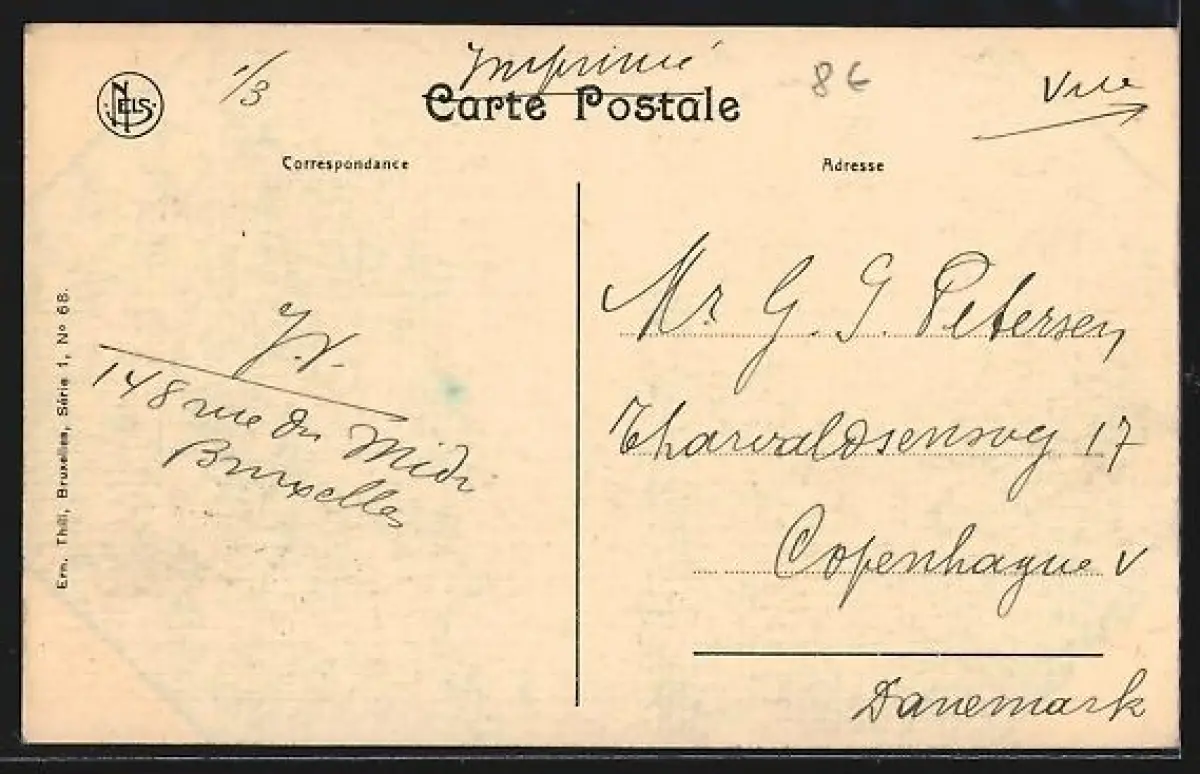 NELS
1/3
Imprimé
8€
Vue
Carte Postale
Correspondance
Adresse
J.V.
148 rue du Midi
Bruxelles
Ern. Thill, Bruxelles, Série 1, No 68.
Mr G. G. Petersen
Tharvaldsensvej 17
Copenhague V
Danemark